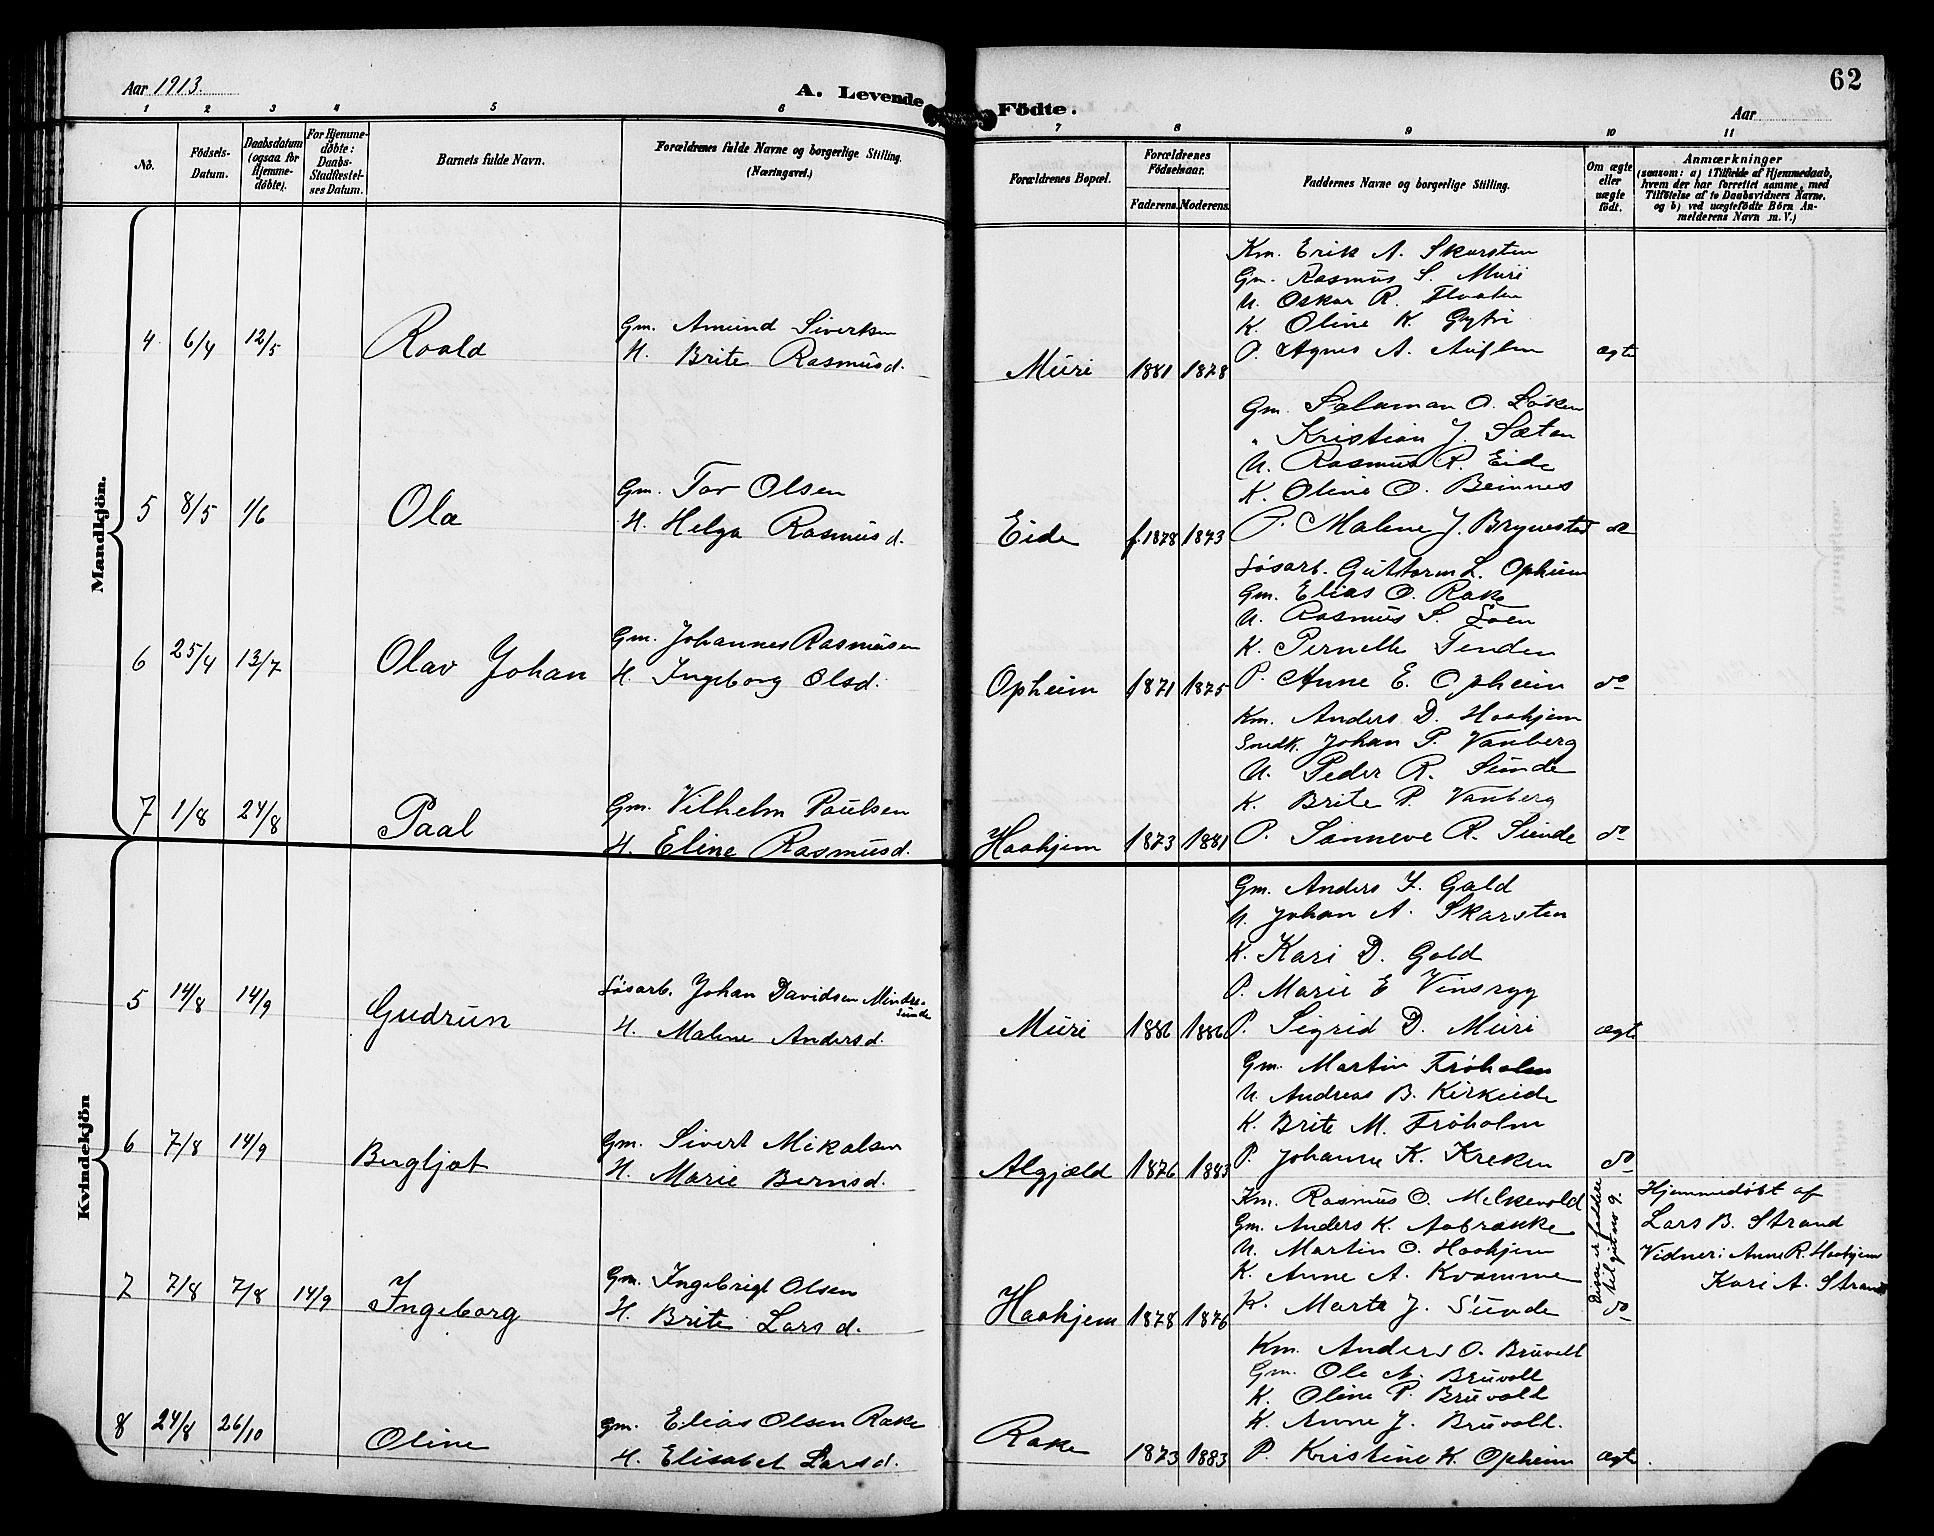 Aar 1913.
A. Levende Födte.
62
Aar
1 2 3 4 5 6 7 8 9 10 11
No.
Födsels-Datum.
Daabsdatum (ogsaa for Hjemme-döbte).
For Hjemme-döbte: Daabs-Stadfæstel-ses Datum.
Barnets fulde Navn.
Forældrenes fulde Navne og borgerlige Stilling. (Næringsvei.)
Forældrenes Bopæl.
Forældrenes Födselsaar.
Faderens. Moderens.
Faddernes Navne og borgerlige Stilling.
Om ægte eller uægte födt.
Anmærkninger
(saasom: a) i Tilfælde af Hjemmedaab, hvem der har forrettet samme, med Tilföielse af to Daabsvidners Navne. og b) ved uægtefödte Börn An-melderens Navn m. V.)
Mandkjön.
4 6/4 12/5 Roald
Gm. Amund Sivertsen
H. Brite Rasmusd.
Muri 1881 1878
Km. Erik A. Skarsten
Gm. Rasmus S. Muri
U. Oskar R. Floten
K. Oline K. Gytri
P. Agnes A. Auflem
ægte
5 8/5 1/6 Ola
Gm. Tor Olsen
H. Helga Rasmusd.
Eide f. 1878 1873
Gm. Salamon O. Löken
" Kristian J. Sæten
U. Rasmus R. Eide
K. Oline O. Beinnes
P. Malene J. Brynestad
do
6 25/4 13/7 Olav Johan
Gm. Johannes Rasmusen
H. Ingeborg Olsd.
Opheim 1871 1875
Løsarb. Guttorm L. Opheim
Gm. Elias O. Rake
U. Rasmus S. Loen
K. Pernelle Tenden
P. Anne E. Opheim
do
7 1/8 24/8 Paal
Gm. Vilhelm Paulsen
H. Eline Rasmusd.
Haahjem 1873 1881
Km. Anders D. Haahjem
Smedk. Johan P. Vanberg
U. Peder R. Sunde
K. Brite P. Vanberg
P. Sanneve R. Sunde
do
Kvindekjön
5 14/8 14/9 Gudrun
Løsarb. Johan Davidsen Mindre-
Sunde
H. Malene Andersd.
Muri 1886 1886
Gm. Anders I. Gald
U. Johan A. Skarsten
K. Kari D. Gald
P. Marie E Vinsryg
P. Sigrid D. Muri
ægte
6 7/8 14/9 Bergljot
Gm. Sivert Mikalsen
H. Marie Bernsd.
Algjæld 1876 1883
Gm. Martin Frøholm
U. Andreas B. Kirkeide
K. Brite M. Frøholm
P. Johanne K. Kreken
do
7 7/8 7/8 14/9 Ingeborg
Gm. Ingebrigt Olsen
H. Brite Larsd.
Haahjem 1878 1876
Km. Rasmus O. Melkevold
Gm. Anders K. Aabrække
U. Martin O. Haahjem
K. Anne A. Kvamme
K. Marta J. Sunde
do
Disse er faddere
til gut no 9.
Hjemmedøbt af
Lars B. Strand
Vidner: Anne R. Haahjem
Kari A. Strand
8 24/8 26/10 Oline
Gm. Elias Olsen Rake
H. Elisabet Larsd.
Rake 1873 1883
Km. Anders O. Bruvoll
Gm. Ole A. Bruvoll
K. Oline P. Bruvold
K. Anne J. Bruvoll.
P. Kristine K. Opheim
ægte